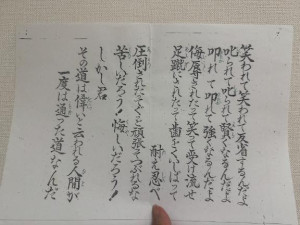 笑われて笑われて反省するんだよ
叱られて叱られて賢くなるんだよ
叩かれて叩かれて強くなるんだよ
侮辱されたって笑って受け流せ
足蹴にされたって歯をくいしばって
耐え忍べ
圧倒されたってぐっと頑張てつぶれるな
苦しいだろう!悔しいだろう!
しかし君
その道は偉いと云われる人間が
一度は通った道なんだ